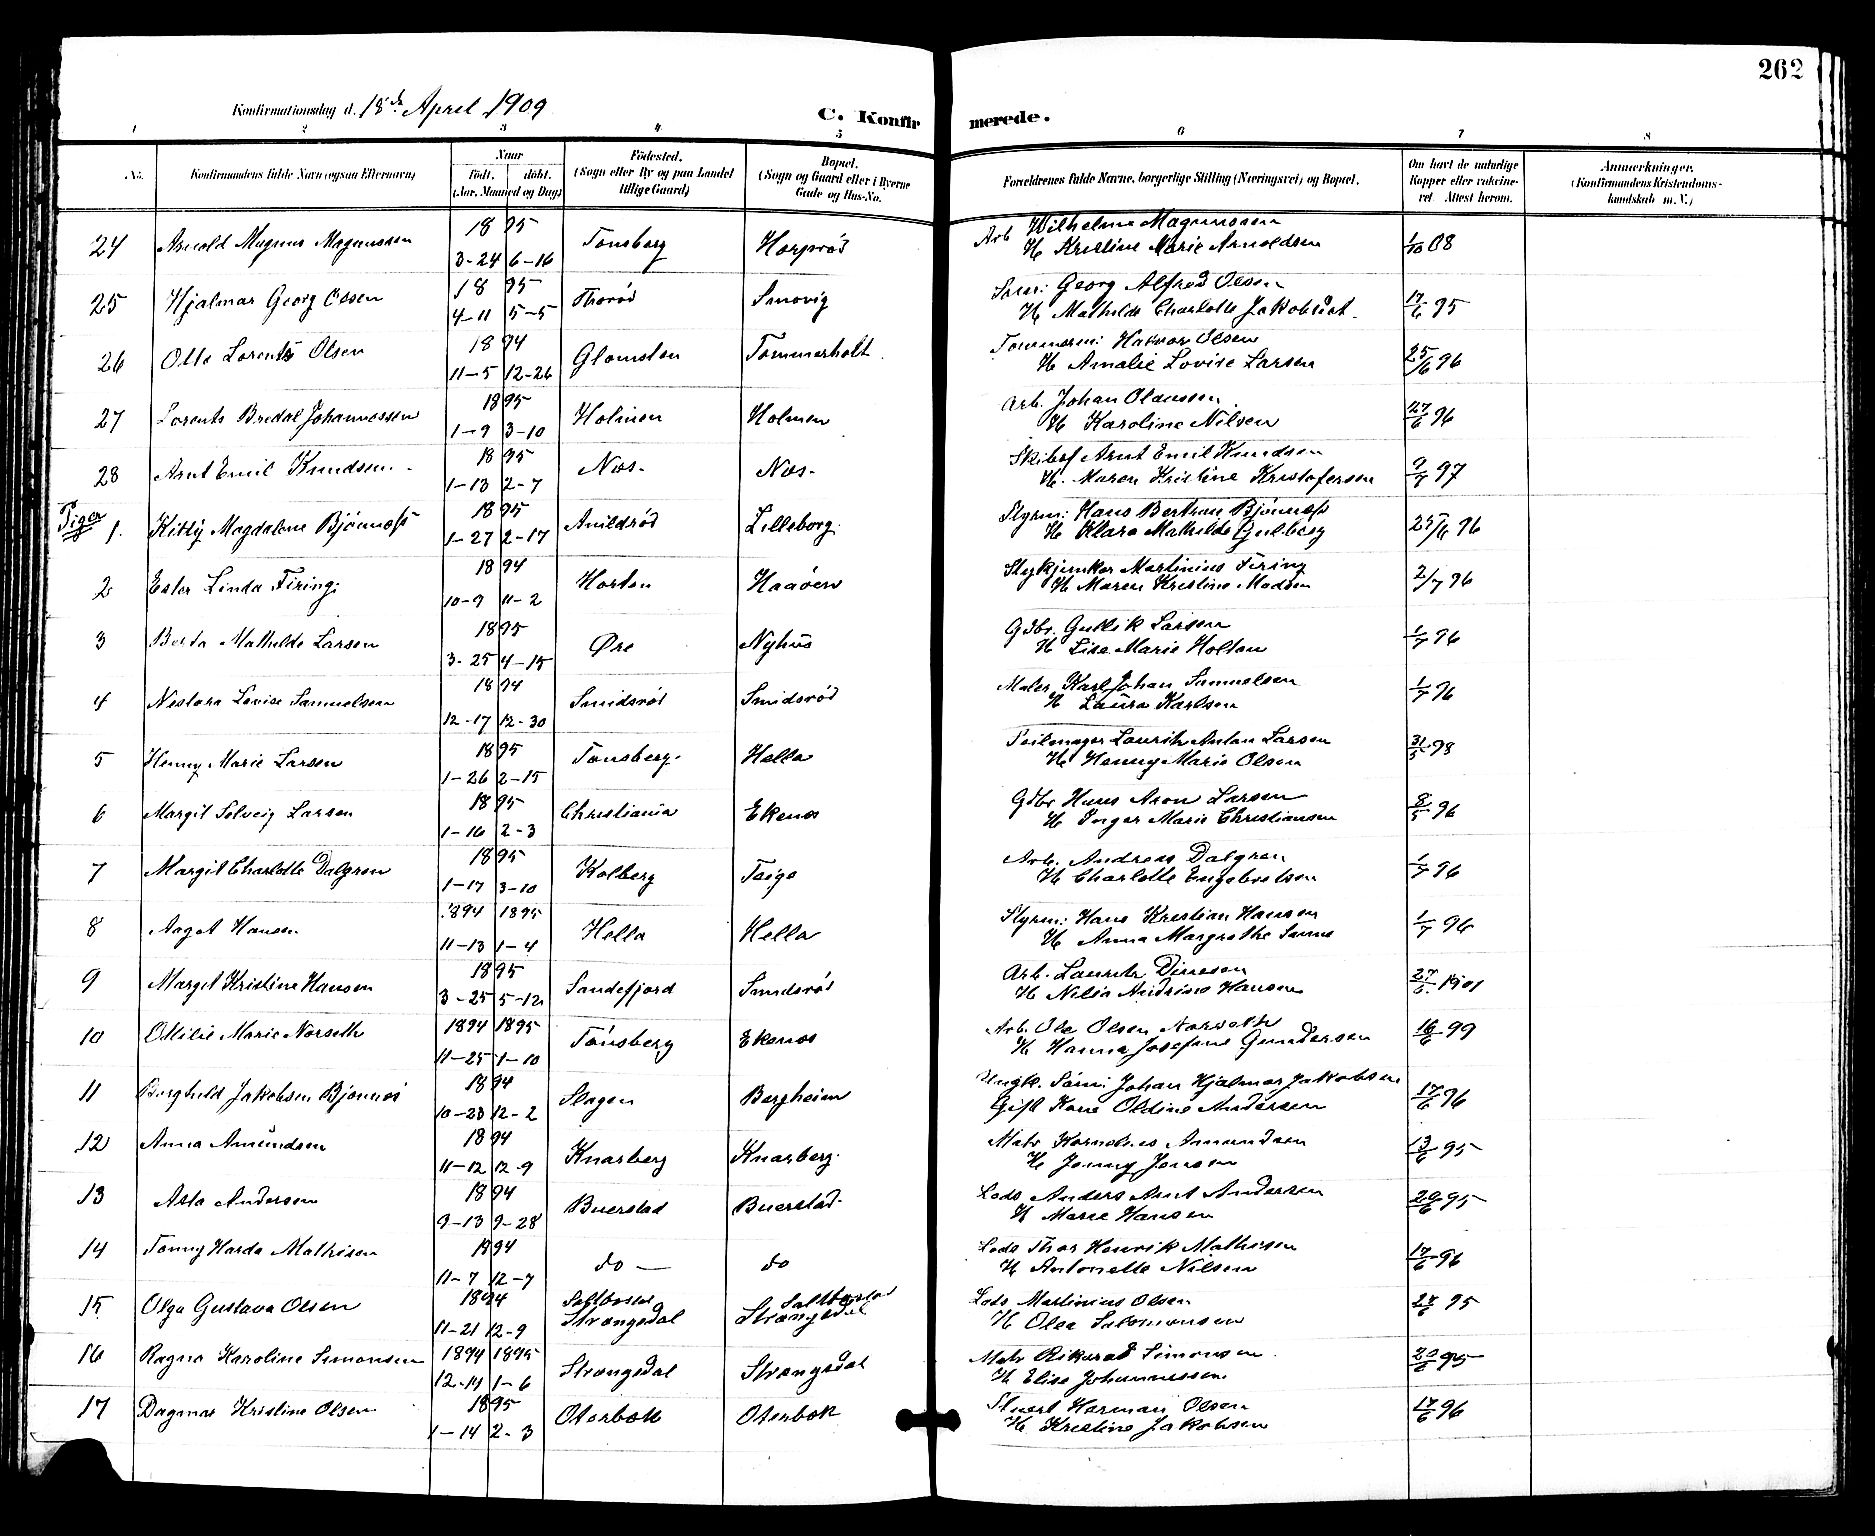 262
Konfirmationsdag d. 18de April 1909
C. Konfirmerede.
1 2 3 4 5 6 7 8
No. Konfirmandens fulde Navn (ogsaa Efternavn) Naar Født. døbt. (Aar, Maaned og Dag) Fødested. (Sogn eller By og paa Landet tillige Gaard) Bopæl. (Sogn og Gaard eller i Byerne Gade og Hus-No. Forældrenes fulde Navne, borgerlige Stilling (Næringsvei) og Bopæl. Om havt de naturlige Kopper eller vakcineret. Attest herom. Anmerkninger. (Konfirmandens Kristendomskundskab m. V.)
24 Arnold Magnus Magnussen 1895 3-24 6-16 Tønsberg Horprød Arb Wilhelm Magnussen
H Kristine Marie Arnoldsen 1/10 08
25 Hjalmar Georg Olsen 1895 4-11 5-5 Thorød Smovig Søm: Georg Alfred Olsen
H Mathilde Charlotte Jakobsdat. 17/6 95
26 Otto Lorents Olsen 1894 11-5 12-26 Glomsten Tommerholt Tømmerm: Halvor Olsen
H Amalie Lovise Larsen 25/6 96
27 Lorents Bredal Johannessen 1895 1-9 3-10 Holmen Holmen Arb. Johan Olaussen
H Karoline Nilsen 27/6 96
28 Arnt Emil Knudsen 1895 1-13 2-7 Næs Næs Skibsf Arnt Emil Knudsen
H. Maren Kristine Kristofersen 9/7 97
Piger
1. Kitty Magdalene Bjønness 1895 1-27 2-17 Anildrød Lilleborg Styrm: Hans Bertran Bjønness
H Klara Mathilde Gulberg 25/6 96
2 Ester Linda Firing 1894 10-9 11-2 Horten Haaøen Stykjunker Martinius Firing
H Maren Kristine Madsen 2/7 96
3 Berta Mathilde Larsen 1895 3-25 4-15 Øre Nyhus Gdbr. Gullik Larsen
H Lise Marie Holtan 1/7 96
4 Nestora Lovise Samuelsen 1894 12-17 12-30 Smidsrød Smidsrød Maler Karl Johan Samuelsen
H Laura Karlsen 1/7 96
5 Henny Marie Larsen 1895 1-26 2-15 Tønsberg Hella Seilmager Laurits Anton Larsen
H Henny Marie Olsen 31/5 98
6 Margit Solveig Larsen 1895 1-16 2-3 Christiania Ekenes Gdbr Hans Aron Larsen
H Inger Marie Christiansen 8/5 96
7 Margit Charlotte Dalgren 1895 1-17 3-10 Kolberg Teige Arb. Andreas Dalgren
H Charlotte Engebretsen 1/7 96
8 Aagot Hansen 1894 1895 11-13 1-4 Hella Hella Styrm: Hans Kristian Hansen
H Anna Margrethe 1/7 96
9 Margit Kristine Hansen 1895 3-25 5-12 Sandefjord Smidsrød Arb. Laurits
H Nilia Andrine Hansen 27/6 1901
10 Ottilie Marie Norseth 1894 1895 11-25 1-10 Tønsberg Ekenes Arb. Ole Olsen Norseth
H Hanna Josefine Gundersen 16/6 99
11 Borghild Jakobsen Bjønnes 1894 10-23 12-2 Slagen Bergheim Ungk. Søm: Johan Hjalmar Jakobsen
Gift Kone Oldine Andersen 17/6 96
12 Anna Amundsen 1894 11-12 12-9 Knarberg Knarberg Matr Kornelius Amundsen
H Jenny Jensen 13/6 95
13 Asta Andersen 1894 9-13 9-28 Buerstad Buerstad Lods Anders Arnt Andersen
H Marie Hansen 20/6 95
14 Tonny Harda Mathisen 1894 11-7 12-7 do — do Lods Thor Henrik Mathisen
H Antonette Nilsen 17/6 96
15 Olga Gustava Olsen 1894 11-21 12-9 Saltbostad Strængsdal Saltbostad Strængsdal Lods Martinius Olsen
H Olea Salomonsen 27/6 95
16 Ragna Karoline Simonsen 1894 1895 12-14 1-6 Strængsdal Strængsdal Matr Rikard Simonsen
H Elise Johannessen 20/6 95
17 Dagmar Kristine Olsen 1895 1-14 2-3 Oterbæk Oterbæk Stuert Herman Olsen
H Kristine Jakobsen 17/6 96